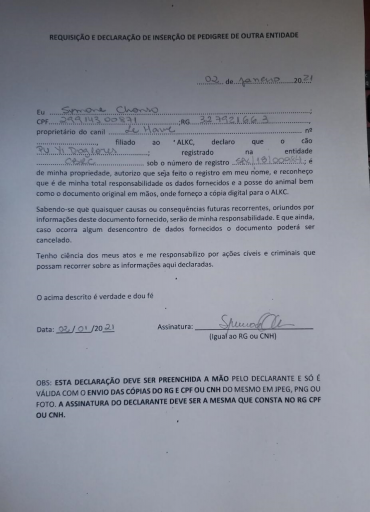 REQUISIÇÃO E DECLARAÇÃO DE INSERÇÃO DE PEDIGREE DE OUTRA ENTIDADE
02 de Janeiro 2021
Eu Simone Chonso ;
CPF RG
proprietário do canil Le Have nº
, filiado ao ALKC, declaro que o cão
registrado na entidade
sob o número de registro é
de minha propriedade, autorizo que seja feito o registro em meu nome, e reconheço
que é de minha total responsabilidade os dados fornecidos e a posse do animal bem
como o documento original em mãos, onde forneço a cópia digital para o ALKC.
Sabendo-se que quaisquer causas ou consequências futuras recorrentes, oriundos por
informações deste documento fornecido, serão de minha responsabilidade. E que ainda,
caso ocorra algum desencontro de dados fornecidos o documento poderá ser
cancelado.
Tenho ciência dos meus atos e me responsabilizo por ações cíveis e criminais que
possam recorrer sobre as informações aqui declaradas.
O acima descrito é verdade e dou fé
Data: 02/01/2021 Assinatura:
(Igual ao RG ou CNH)
OBS: ESTA DECLARAÇÃO DEVE SER PREENCHIDA A MÃO PELO DECLARANTE E SÓ É
VÁLIDA COM O ENVIO DAS CÓPIAS DO RG E CPF OU CNH DO MESMO EM JPEG, PNG OU
FOTO. A ASSINATURA DO DECLARANTE DEVE SER A MESMA QUE CONSTA NO RG CPF
OU CNH.